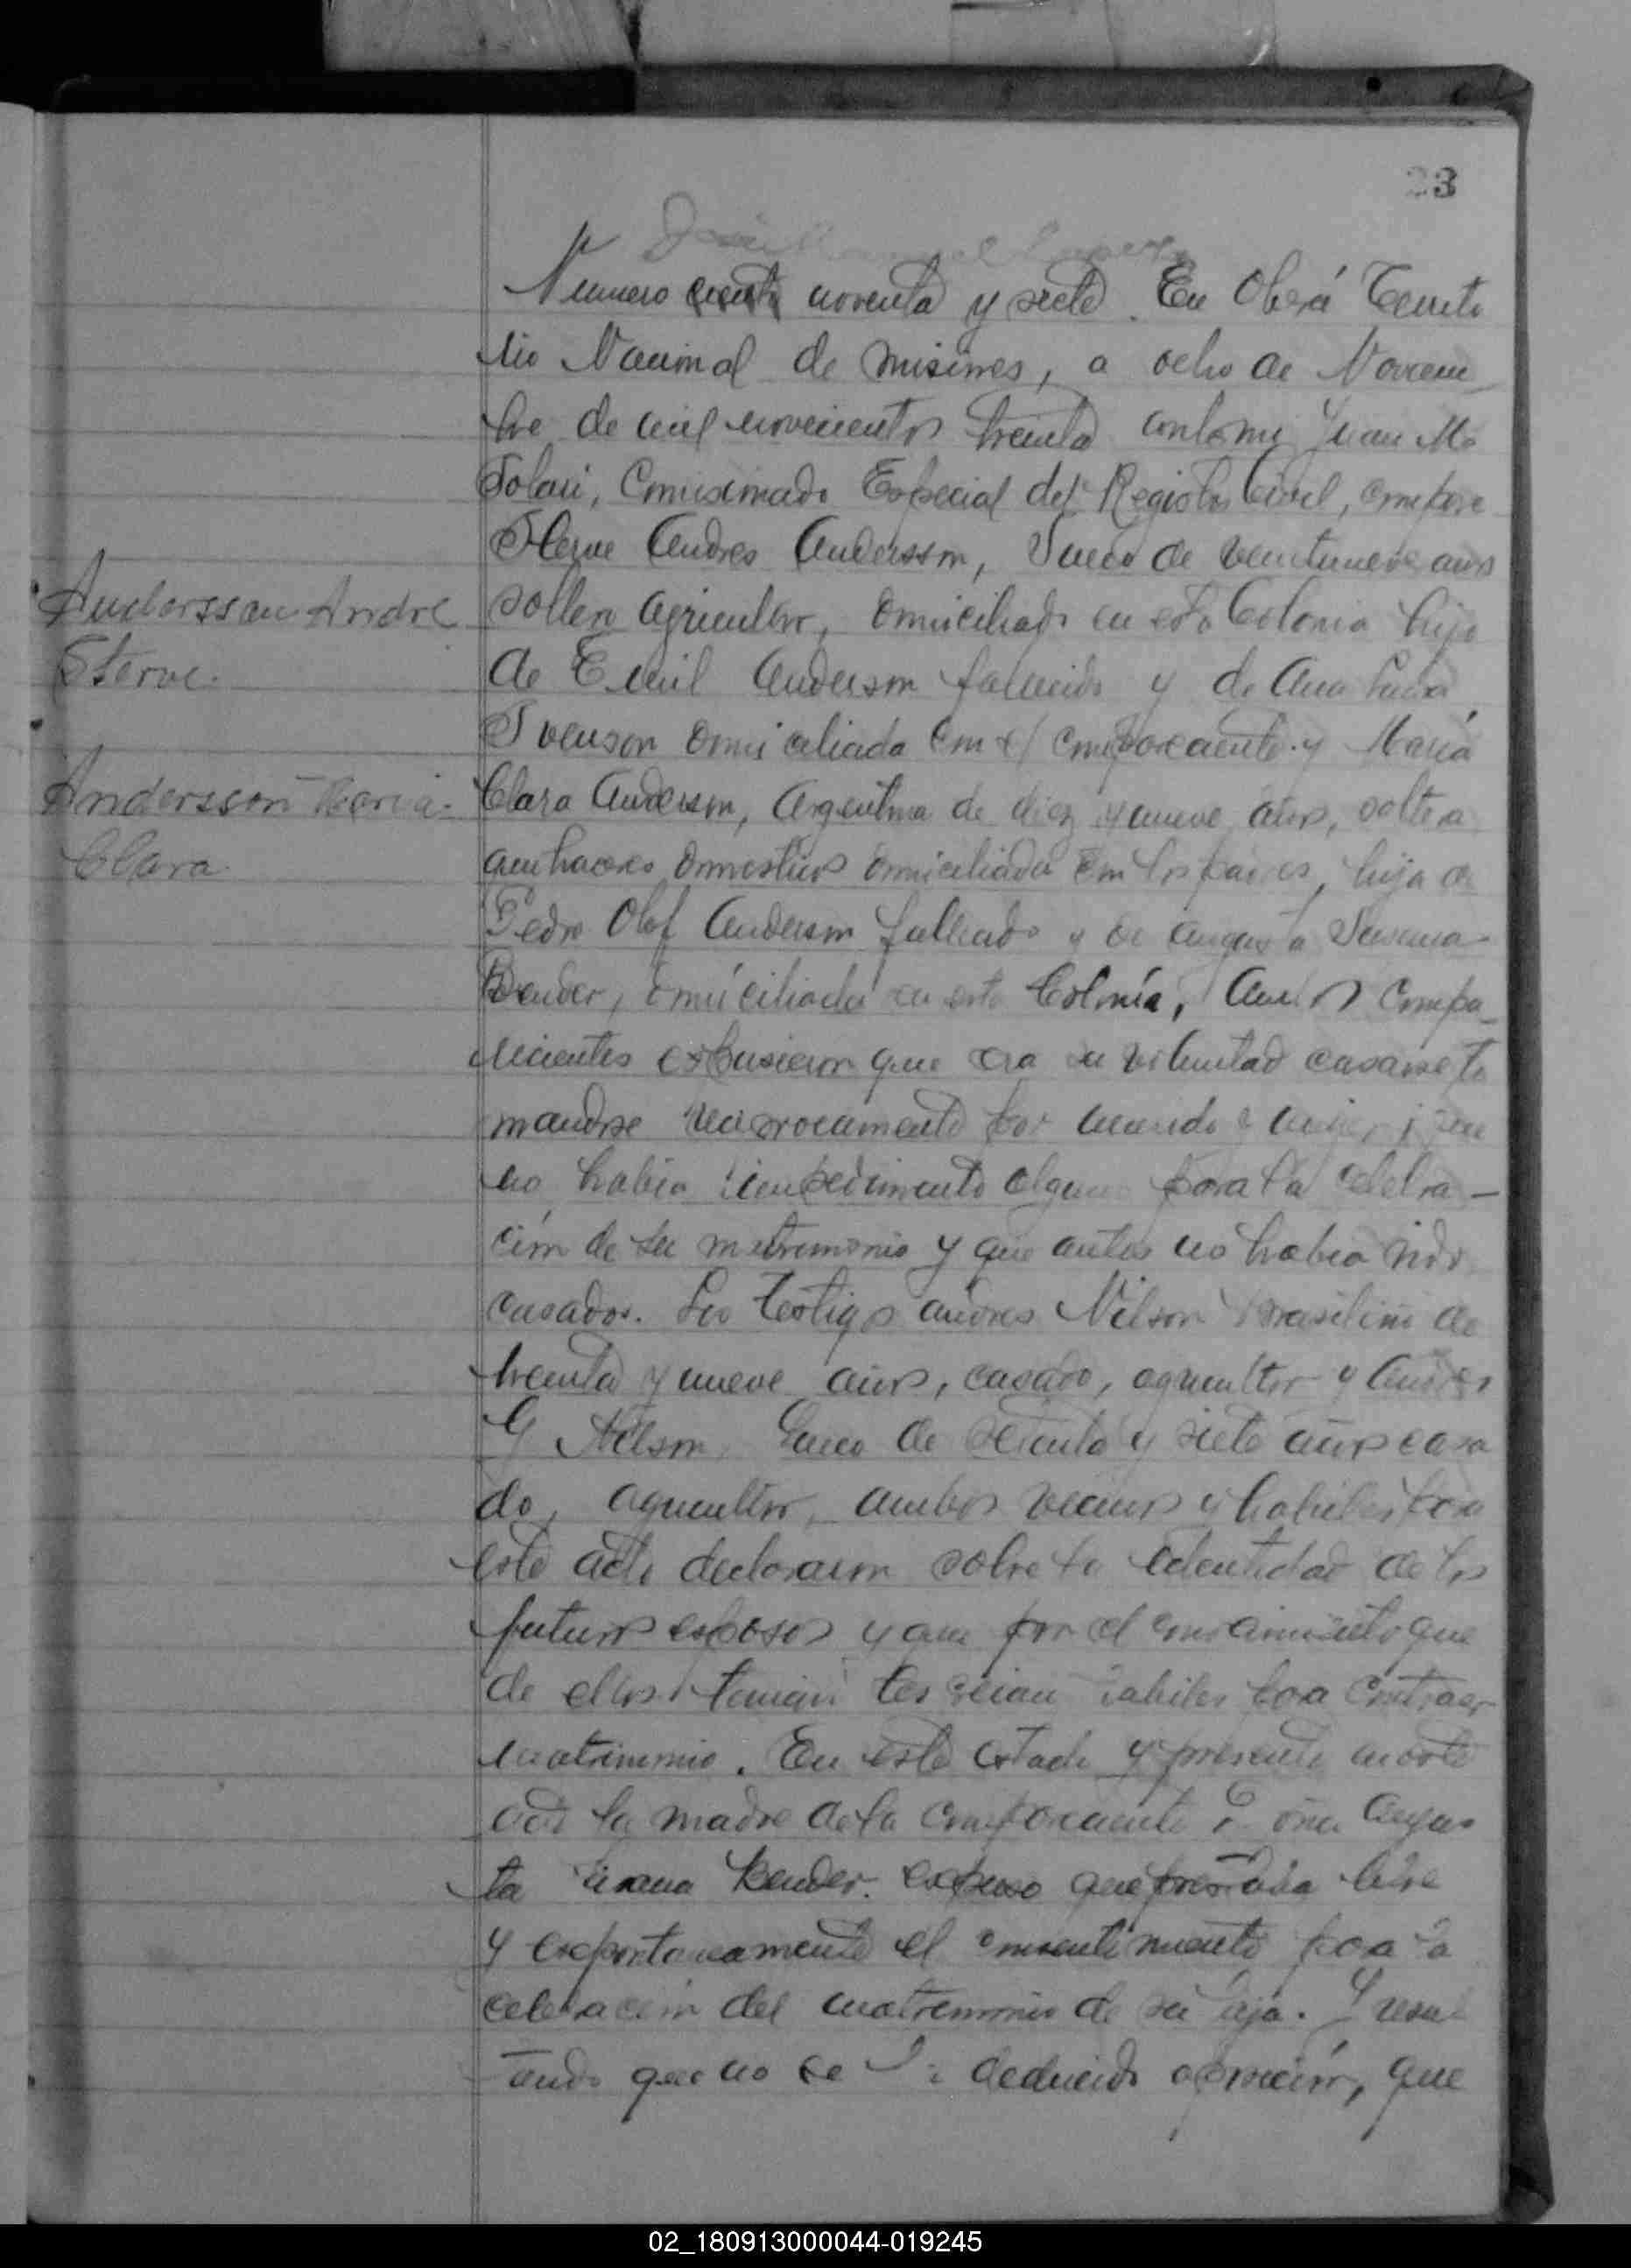 23
Numero noventa y siete. En Oberá Territo
rio Nacional de Misiones, a ocho de Noviem
bre de mil novecientos treinta ante mi Juan Ma
Solari, Comisionado Especial del Registro Civil, compare
Sterne Andres Andersson, Sueco de veintinueve años
soltero agricultor, domiciliado en esta Colonia hijo
de Emil Anderson fallecido y de Ana
Svenson domiciliada con el compareciente y Maria
Clara Anderson, Argentina de diez y nueve años, soltera
quehaceres domesticos domiciliada con los padres, hija de
Pedro Olof Anderson fallecido y de Augusta Susana
Bender, domiciliada en esta Colonia, Ambos compa
recientes expusieron que era su voluntad casarse to
mandose reciprocamente por marido y mujer; que
no habia impedimento alguno para la celebra-
cion de su matrimonio y que antes no habia sido
casados. Los testigos Andres Nilson Brasilino de
treinta y nueve años, casado, agricultor y Andres
G Nelson, Sueco de y siete años casa
do, agricultor, ambos vecinos y habiles para
este acto declararon sobre la identidad de los
futuros esposos y que por el conocimiento que
de ellos tenian los creian habiles para contraer
matrimonio. En este estado y presente en este
acto la madre de la compareciente Doña Augus
ta Susana Bender. expuso que prestaba libre
y expontaneamente el consentimiento para la
celebracion del matrimonio de su hija. Y resul
tando que no se ha deducido oposicion, que
Andersson Andre
Sterne.
Andersson Maria
Clara.
02_180913000044-019245